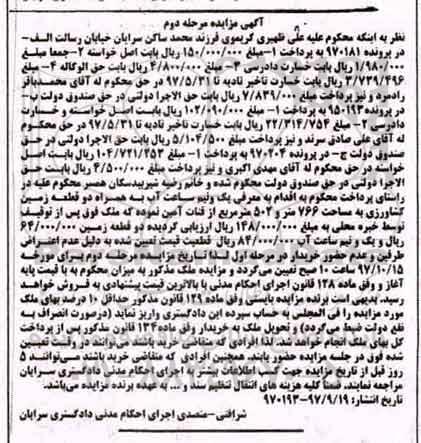 آگهی مزایده مرحله دوم
نظر به اینکه محکوم علیه علی ظهیری کریموی فرزند محمد ساکن سرایان خیابان رسالت الف-
در پرونده ۹۷۰۱۸۱ به پرداخت ۱-مبلغ ۱۵۰/۰۰۰/۰۰۰ ریال بابت اصل خواسته ۲-جمعا مبلغ
۱/۹۸۰/۰۰۰ ریال بابت خسارت دادرسی ۳- مبلغ ۴/۸۰۰/۰۰۰ ریال بابت حق الوکاله ۴- مبلغ
۳/۷۳۹/۴۹۶ ریال بابت خسارت تاخیر تادیه تا ۹۷/۵/۳۱ در حق محکوم له آقای محمدباقر
رادمرد و نیز پرداخت مبلغ ۷/۸۳۹/۰۰۰ ریال بابت حق الاجرا دولتی در حق صندوق دولت ب-
در پرونده ۹۵۰۱۹۳ به پرداخت ۱- مبلغ ۱۰۲/۰۹۰/۰۰۰ ریال بابت اصل خواسته و خسارت
دادرسی ۲- مبلغ ۲۲/۳۱۴/۷۵۴ ریال بابت خسارت تاخیر تادیه تا ۹۷/۵/۳۱ در حق محکوم
له آقای علی صادق سرند و نیز پرداخت مبلغ ۵/۱۰۴/۵۰۰ ریال بابت حق الاجرا دولتی در حق
صندوق دولت ج- در پرونده ۹۷۰۲۰۴ به پرداخت ۱- مبلغ ۱۰۴/۷۲۱/۲۵۳ ریال بابت اصل
خواسته در حق محکوم له آقای مهدی اکبری و نیز پرداخت مبلغ ۴/۵۰۰/۰۰۰ ریال بابت حق
الاجرا دولتی در حق صندوق دولت محکوم شده و خانم رضیه شیربیدسکان همسر محکوم علیه در
راستای پرداخت محکوم به اقدام به معرفی یک ونیم ساعت آب به همراه دو قطعه زمین
کشاورزی به مساحت ۷۶۶ متر و ۵۰۲ مترمربع از قنات آمین نموده که ملک فوق پس از توقیف
توسط خبره محلی به مبلغ ۱۴۸/۰۰۰/۰۰۰ ریال ارزیابی گردیده دو قطعه زمین ۶۴/۰۰۰/۰۰۰
ریال و یک و نیم ساعت آب ۸۴/۰۰۰/۰۰۰ ریال قطعیت قیمت تعیین شده به دلیل عدم اعتراض
طرفین و عدم حضور خریدار در مرحله اول لذا تاریخ مزایده مرحله دوم برای مورخه
۹۷/۱۰/۱۵ ساعت ۱۰ صبح تعیین می‌گردد و مزایده ملک مذکور به میزان محکوم به با قیمت پایه
آغاز و وفق ماده ۱۲۸ قانون اجرای احکام مدنی با بالاترین قیمت پیشنهادی به فروش خواهد
رسید. بدیهی است برنده مزایده بایستی وفق ماده ۱۲۹ قانون مذکور حداقل ۱۰ درصد بهای ملک
مورد مزایده را فی المجلس به حساب سپرده این دادگستری واریز نماید (درصورت انصراف به
نفع دولت ضبط می‌گردد) و تحویل ملک به خریدار وفق ماده ۱۳۴ قانون مذکور پس از پرداخت
کل بهای ملک انجام خواهد شد. لذا افرادی که متقاضی خرید باشند می‌توانند در وقت تعیین
شده فوق در جلسه مزایده حضور یابند. همچنین افرادی که متقاضی خرید باشند می‌توانند ۵
روز قبل از تاریخ مزایده جهت کسب اطلاعات بیشتر به اجرای احکام مدنی دادگستری سرایان
مراجعه نمایند. ضمناً کلیه هزینه های انتقال تنظیم سند و ... به عهده برنده مزایده می‌باشد.
تاریخ انتشار: ۹۷/۹/۱۹-۹۷۰۱۹۳
شرافتی-متصدی اجرای احکام مدنی دادگستری سرایان